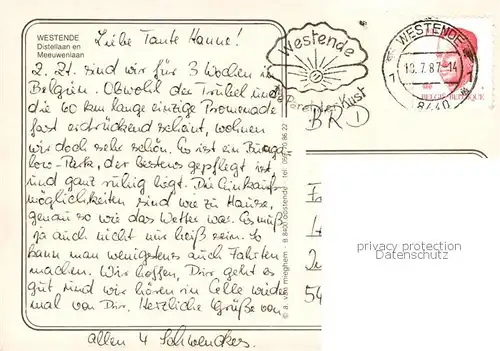 WESTENDE
Distellaan en
Meeuwenlaan
Liebe Tante Hanne!
Z. Zt. sind wir für 3 Wochen in
Belgien. Obwohl der Trubel und
die 60 km lange einzige Promenade
fast erdrückend scheint, wohnen
wir doch sehr schön. Es ist ein Bunga-
low-Park, der bestens gepflegt ist,
und ganz ruhig liegt. Die Einkaufs-
möglichkeiten sind wie zu Hause,
genau so wie das Wetter war. Es muß
ja auch nicht nur heiß sein. So
kann man wenigstens auch Fahrten
machen. Wir hoffen, Dir geht es
gut und wir hören in Celle wieder
mal von Dir. Herzliche Grüße von
allen 4 Schwenckes.
© a. van mieghem - B 8400 oostende - tel. 059/70 86 22
Westende
de Parel der Kust
WESTENDE
18.7.87-14
8440
BELGIË BELGIQUE
BRD
54
privacy protection
Datenschutz